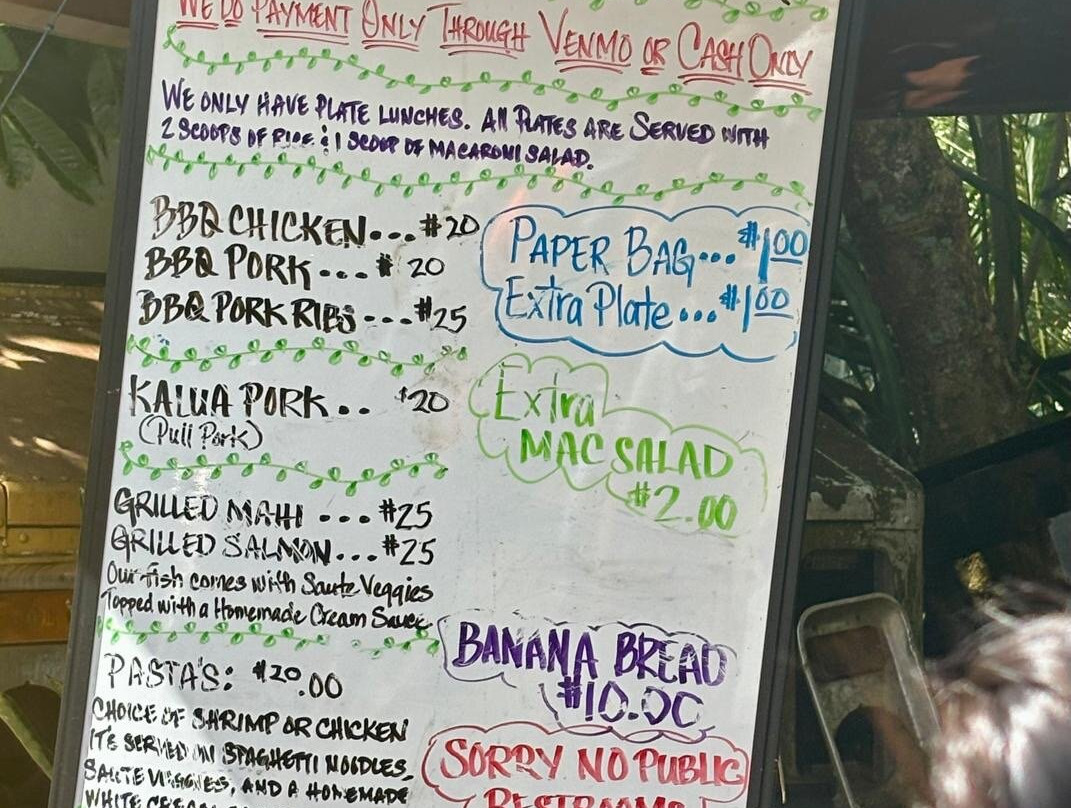 WE DO PAYMENT ONLY THROUGH VENMO OR CASH ONLY
WE ONLY HAVE PLATE LUNCHES. All PLATES ARE SERVED WITH
2 SCOOPS OF RICE & 1 SCOOP OF MACARONI SALAD.
BBQ CHICKEN... $20
BBQ PORK... $20
BBQ PORK RIBS... $25
KALUA PORK.. $20
(Pull Pork)
GRILLED MAHI ... $25
GRILLED SALMON... $25
Our fish comes with Saute Veggies
Topped with a Homemade Cream Sauce
PASTA'S: $20.00
CHOICE OF SHRIMP OR CHICKEN
IT'S SERVED ON SPAGHETTI NOODLES,
SAUTE VEGGIES, AND A HOMEMADE
WHITE CREAM
PAPER BAG... $1.00
Extra Plate... $1.00
Extra
MAC SALAD
$2.00
BANANA BREAD
$10.00
SORRY NO PUBLIC
RESTROOMS